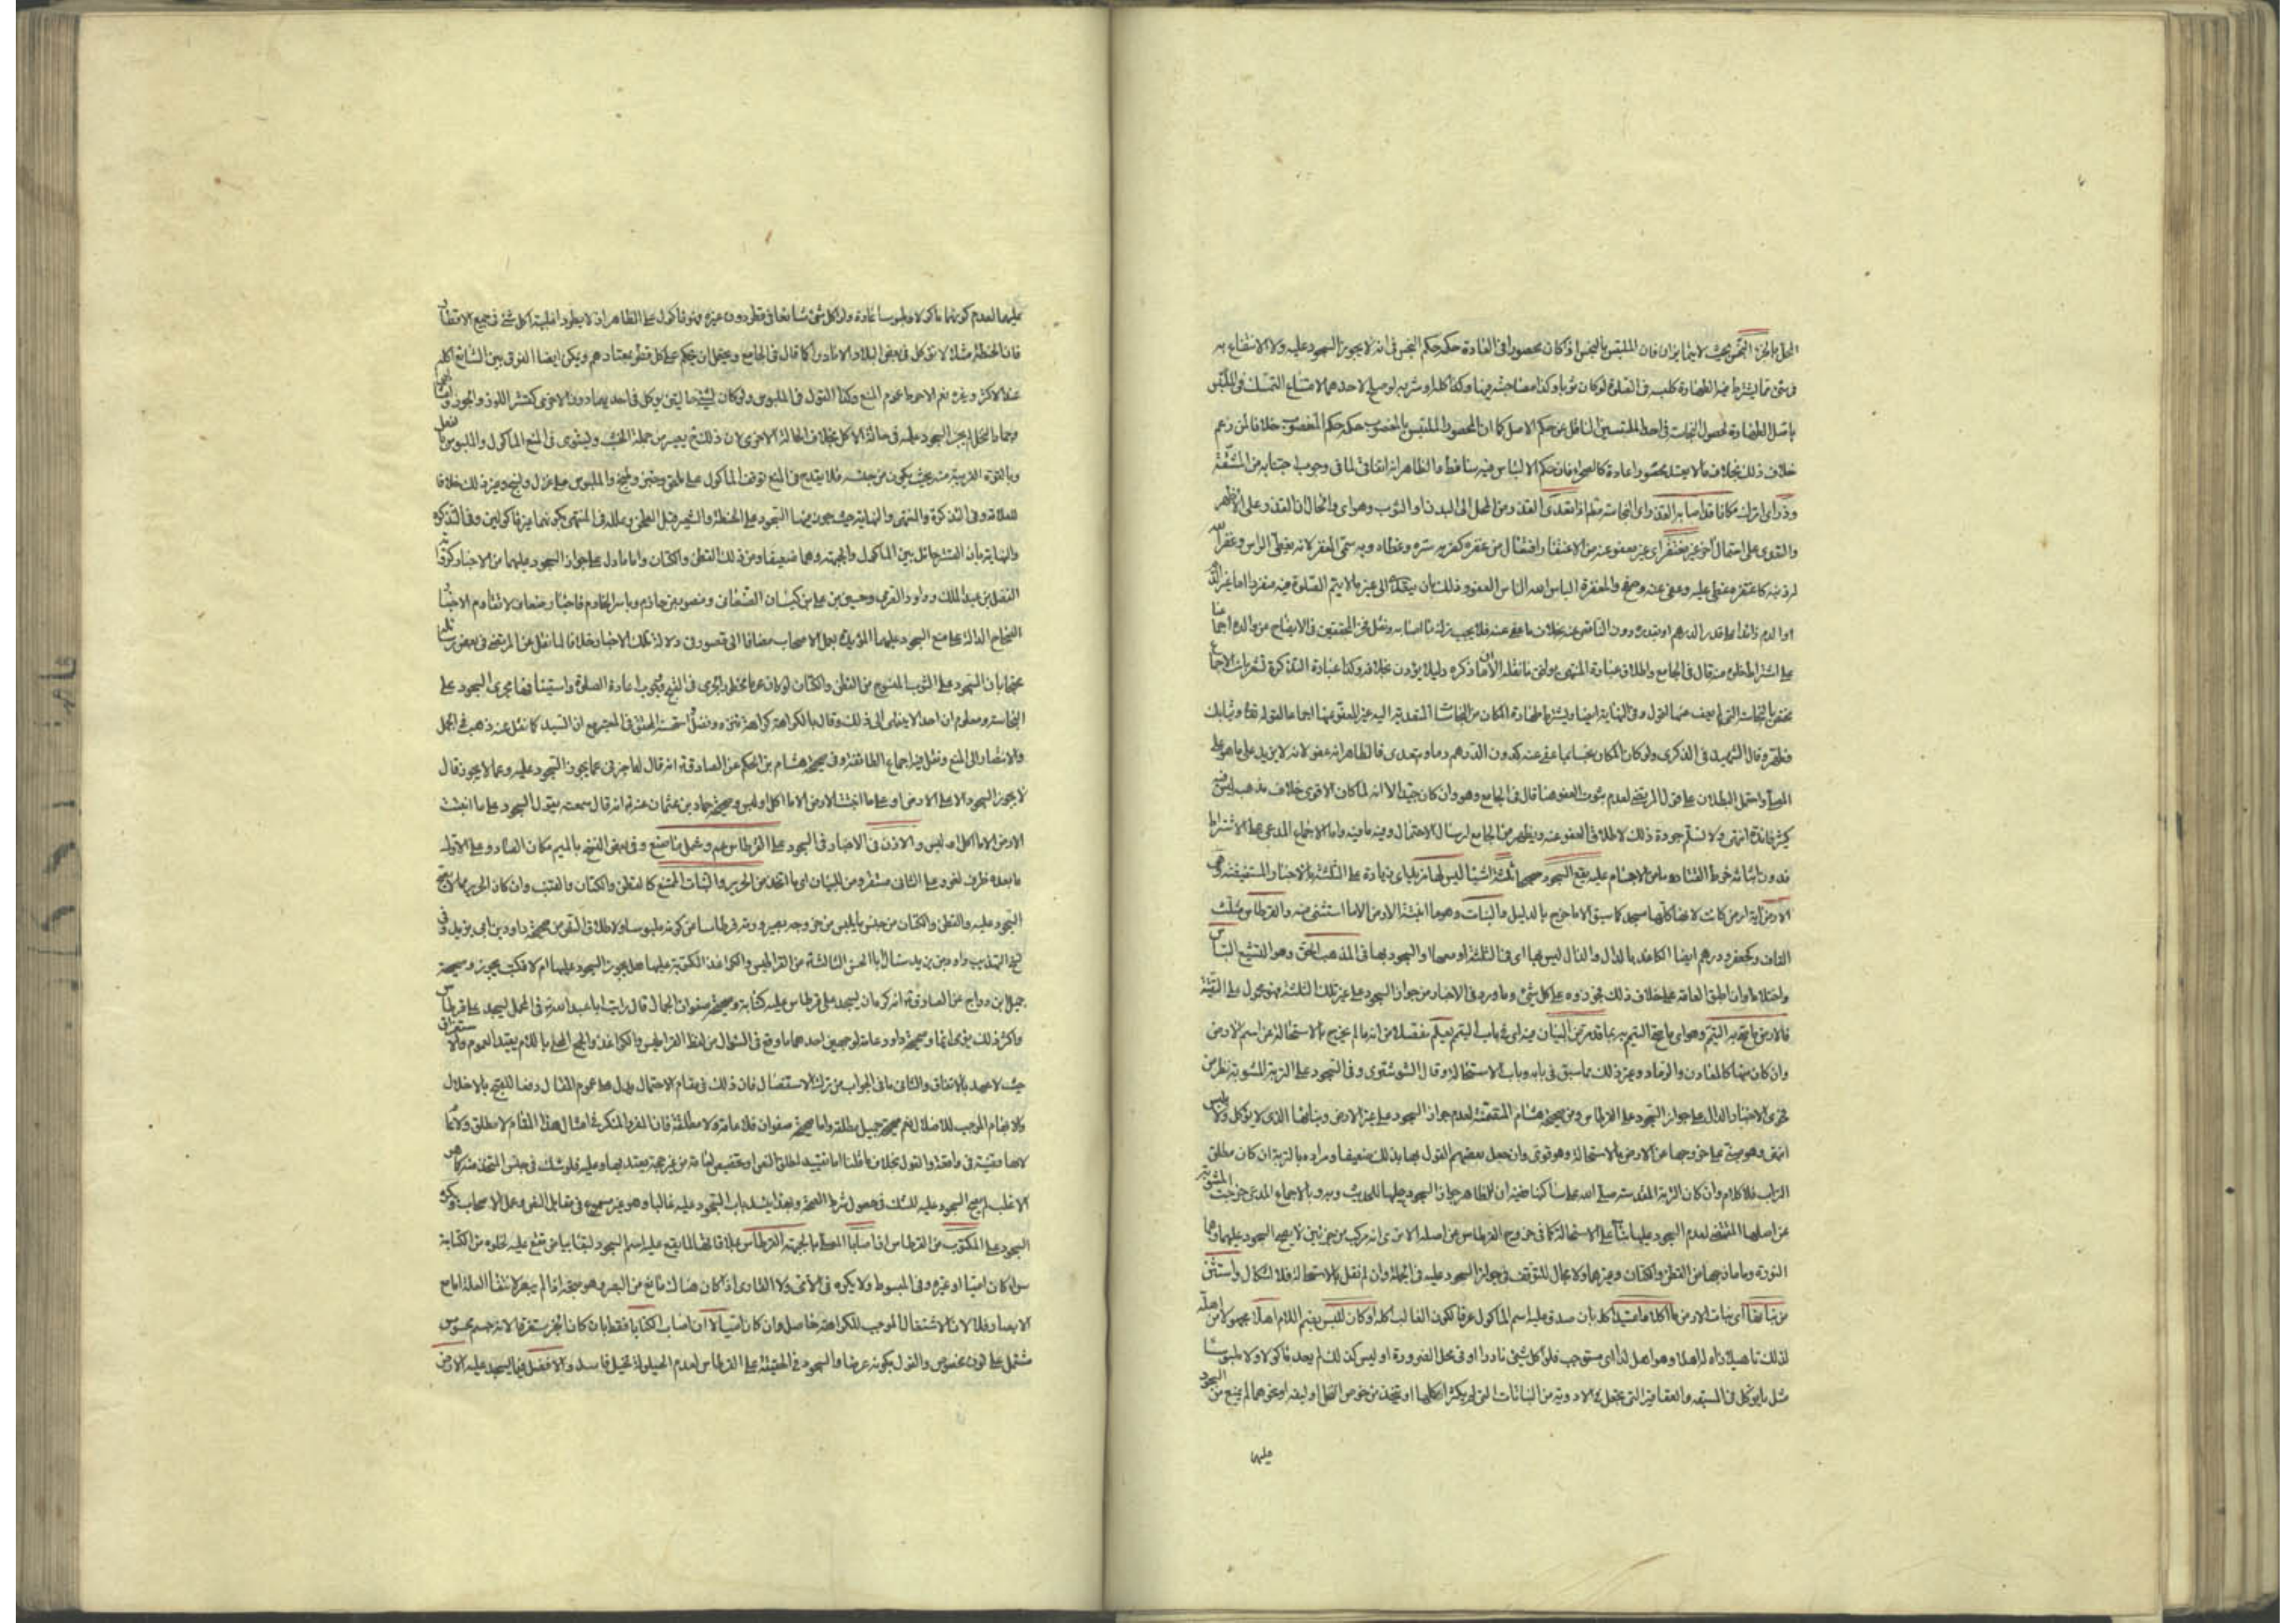 المحل بالجزء النجس بحيث لا يتمايزان فان الملتبس بالنجس اذ كان محصورا فى العادة حكمه حكم النجس فى انه لا يجوز السجود عليه ولا الانتفاع به
فى شئ مما يشترط فيه الطهارة كلبسه فى الصلوة لو كان ثوبا وكذا مصاحبته فيها وكذا اكله او شربه لو صلح لاحدهما لامتناع التمسك فى الملتبس
باصل الطهارة لحصول النجاسة فى احد الملتبسين الناقل عن حكم الاصل كما ان المحصور الملتبس بالمغصوب حكمه حكم المغصوب خلافا لمن زعم
خلاف ذلك بخلاف ما لا يعد محصورا عادة كالصحراء فان حكم الالتباس فيه ساقط والظاهر انه اتفاقى لما فى وجوب اجتنابه من المشقة
وذر اى اترك مكانا قد اصابه القذر اى النجاسة
والتعدى على احتمال آخر غير مغتفر اى غير معفو عنه من الاغتفار افتعال من غفره كضربه ستره وغطاه وبه سمى المغفر لانه يغطى الراس وغفر الله
له ذنبه كاغتفره غطى عليه وعفى عنه وصفح والمغفرة الباس الله الناس العفو وذلك بان يتعدى الى غير ما لا يتم الصلوة فيه منفردا اما غير الدم
او الدم زائدا على قدر الدرهم او بقدره دون الناقص عنه بخلاف ما عفى عنه فلا يجب ترك ما اصابه ونقل فخر المحققين فى الايضاح عن والده اجماعنا
على اشتراط خلوه منه قال فى الجامع واطلاق عبارة المنتهى يوافق ما نقله الا ان ما ذكره دليلا يؤذن بخلافه وكذا عبارة التذكرة تشعر بان الاجماع
مختص بالنجاسات التى لم يعف عنها القول وفى النهاية ايضا ويشترط طهارة المكان من النجاسات المتعدية اليه غير المعفو عنها اجماعا لقوله تعالى وثيابك
فطهر وقال الشهيد فى الذكرى ولو كان المكان نجسا بما عفى عنه كدون الدرهم دما ويتعدى فالظاهر انه عفو لانه لا يزيد على ما هو على
المصلى واحتمل البطلان على قول المرتضى لعدم ثبوت العفو هنا قال فى الجامع وهو وان كان جيدا الا انه لما كان الاقوى خلاف مذهب المرتضى
كثير فائدة انتهى ولا نسلم جودة ذلك لاطلاق العفو عنه ويظهر من الجامع ارسال الاحتمال وفيه ما فيه واما الاجماع المدعى على الاشتراط
فدون اثباته خرط القتاد ما من الاجسام عليه يقع السجود صحيحا ثلثة اشيا ليس لها مزيد اى زيادة على الثلثة بالاخبار المستفيضة وهى
الارض اية ارض كانت لانها كلها مسجد كما سبق الا ما خرج بالدليل والنبات وهو ما انبتته الارض الا ما استثنى منه والقرطاس مثلث
القاف وكجعفر ودرهم ايضا الكاغد بالدال والذال ليس بها اى فى الثلثة او معها او السجود بها فى المذهب الحق وهو التشيع التباس
واختلاط وان اطبق العامة على خلاف ذلك فجوزوه على كل شئ وما ورد فى الاخبار من جواز السجود على غير تلك الثلثة فهو محمول على التقية
فالارض ما يتجه به التيمم وهو اى ما يتجه التيمم به بما قد مر من البيان فيه اى فى باب التيمم يعلم مفصلا من انه ما لم يخرج بالاستحالة عن اسم الارض
وان كان منها كالمعادن والرماد وغير ذلك مما سبق فى بابه وباب الاستحالة وقال الشوشترى وفى السجود على التربة المشوية نظر من
فحوى الاخبار الدال على جواز السجود على القرطاس ومن صحيحة هشام المتضمنة لعدم جواز السجود على غير الارض ونباتها الذى لا يؤكل ولا يلبس
انتهى وهو مبنى على خروجها عن الارض بالاستحالة وهو قوى وان جعل بعضهم القول بها بذلك ضعيفا ومراده بالتربة ان كان مطلق
التراب فلا كلام وان كان التربة المقدسة صلى الله على ساكنها ففيه ان الظاهر جواز السجود عليها للحديث وبه وبالاجماع المدعى خرجت المشوية
عن اصلها المقتضى لعدم السجود عليها بناء على الاستحالة كما فى خروج القرطاس عن اصله الا ترى انه مركب من جزئين لا يصح السجود عليهما وهما
النورة وما مازجها من القطن والكتان وغيرهما ولا مجال للتوقف فى جواز السجود عليه فى الجملة وان لم نقل بالاستحالة فلا اشكال واستثن
من نباتها اى نبات الارض ما اكلا ما اعتيد اكله بان صدق عليه اسم الماكول عرفا لكون الغالب اكله او كان للبس بضم اللام اهلا محمولا من اهله
لذلك تاهيلا رآه له اهلا وهو اهل لذا اى مستوجب فلو اكل شئ نادرا او فى محل الضرورة او لبس كذلك لم يعد ماكولا ولا ملبوسا
مثل ما يؤكل فى المسبغة والعقاقير التى تجعل فى الادوية من النباتات التى لم يكثر اكلها او يتخذ من خوص النخل او ليفه او نحوهما لم يمنع من السجود
عليها
عليها لعدم كونها ماكولا وملبوسا عادة ولو اكل شئ شائعا فى قطر دون غيره فهو ماكول على الظاهر اذ لا يطرد اغلبية اكل شئ فى جميع الاقطار
فان الحنطة مثلا لا تؤكل فى بعض البلاد الا نادرا كما قال فى الجامع ويحتمل ان يحكم على كل قطر بمعتادهم ويمكن ايضا الفرق بين الشايع اكله
عند الاكثر وغيره نعم الاحوط عموم المنع وكذا القول فى الملبوس ولو كان لشئ حالتين يؤكل فى احديهما دون الاخرى كقشر اللوز والجوز
لم يجز السجود عليه فى حالة الاكل بخلاف الحالة الاخرى لان ذلك ح يصير من جملة الخشب ويستوى فى المنع الماكول والملبوس بالفعل
وبالقوة القريبة منه بحيث يكون من جنسه فلا يقدح فى المنع توقف الماكول على طحن وخبز وطبخ والملبوس على غزل ونسج وغير ذلك خلافا
للعلامة فى التذكرة والمنتهى والنهاية حيث جوز فيها السجود على الحنطة والشعير قبل الطحن وعلله فى المنتهى بكونهما غير ماكولين وفى التذكرة
والنهاية بان القشر حائل بين الماكول والجبهة وهما ضعيفان ومن ذلك القطن والكتان واما ما دل على جواز السجود عليهما من الاخبار
الفضل بن عبد الملك وداود الصرمى وحسين بن على بن كيسان الصنعانى ومنصور بن حازم وياسر الخادم فاخبار ضعاف لا تقاوم الاخبار
الصحاح الدالة على منع السجود عليهما المؤيدة بعمل الاصحاب مضافا الى قصور فى دلالة تلك الاخبار خلافا لما نقل عن المرتضى فى بعض رسائله
محتجا بان السجود على الثوب المنسوج من القطن والكتان لو كان محرما محظورا لجرى فى القبح ووجوب اعادة الصلوة واستينافها مجرى السجود على
النجاسة ومعلوم ان احدا لا ينتهى الى ذلك وقال بالكراهة كراهة تنزه وفضل استحسنه المحقق فى المعتبر مع ان السيد كما نقل عنه ذهب فى الجمل
والانتصار الى المنع ونقل فيه اجماع الطائفة وفى صحيحة هشام بن الحكم عن الصادق ع انه قال له اخبرنى عما يجوز السجود عليه وعما لا يجوز قال
لا يجوز السجود الا على الارض او على ما انبتت الارض الا ما اكل او لبس وصحيحة حماد بن عثمان عنه ع انه قال سمعته يقول السجود على ما انبتت
الارض الا ما اكل او لبس والاذن فى الاخبار فى السجود على القرطاس عم وعمل ما صنع وفى بعض النسخ بالميم مكان العين او وعلى الاول
ما بعده ظرف لغو وعلى الثانى مستقر ومن للبيان اى ما اتخذ من الحرير والنبات الممتنع كالقطن والكتان والقنب وان كان الحرير مما لا يصح
السجود عليه والقطن والكتان من جنس ما يلبس من خروجه بصيرورته قرطاسا من كونه ملبوسا ولاطلاق النص من صحيحة داود بن ابى يزيد وفى
نسخ التهذيب داود بن يزيد سال ابا الحسن الثالث ع عن القراطيس والكواغذ المكتوبة عليها هل يجوز السجود عليها ام لا فكتب يجوز وصحيحة
جميل بن دراج عن الصادق ع انه كره ان يسجد على قرطاس عليه كتابة وصحيحة صفوان الجمال قال رايت ابا عبد الله ع فى المحمل يسجد على قرطاس
واكثر ذلك يومى ايماء وصحيحة داود عامة لوجهين احدهما ما وقع فى السؤال من لفظ القراطيس والكواغذ والجمع المحلى باللام يفيد العموم والاستغراق
حيث لا عهد بالاتفاق والثانى ما فى الجواب من ترك الاستفصال فان ذلك فى مقام الاحتمال يدل على عموم المقال دفعا للقبح بالاخلال
والابهام الموجب للاضلال نعم صحيحة جميل مطلقة واما صحيحة صفوان فلا عامة ولا مطلقة فان المفرد المنكر فى امثال هذا المقام لا مطلق ولا عام
لانها قضية فى واقعة والقول بخلاف ما قلنا اما تقييد لمطلق النص او تخصيص لعامه من غير حجة يعتد بها وعليه فلو شك فى جنس المتخذ منه كما هو
الاغلب لم يصح السجود عليه للشك فى حصول شرط الصحة وبهذا ينسد باب السجود عليه غالبا وهو غير مسموع فى مقابل النص وعمل الاصحاب وكره
السجود على المكتوب من القرطاس اذا اصابا المصلى بالجبهة القرطاس ملاقاتها لما يقع عليه اسم السجود لبقا بياض تقع عليه لخلوه من الكتابة
سواء كان اميا او غيره وفى المبسوط ولا يكره فى الامى ولا القارى اذا كان هناك مانع من البصر وهو متجه اذا لم يبصر لانتفا العلة اما مع
الابصار فلا لان الاشتغال الموجب للكراهة حاصل وان كان اميا الا ان اصاب الكتابة فقط بان كان الحبر مستغرقا لانه جسم محسوس
مشتمل على لون مخصوص والقول بكونه عرضا والسجود فى الحقيقة على القرطاس لعدم الحيلولة تخيل فاسد والافضل فيما يسجد عليه الارض